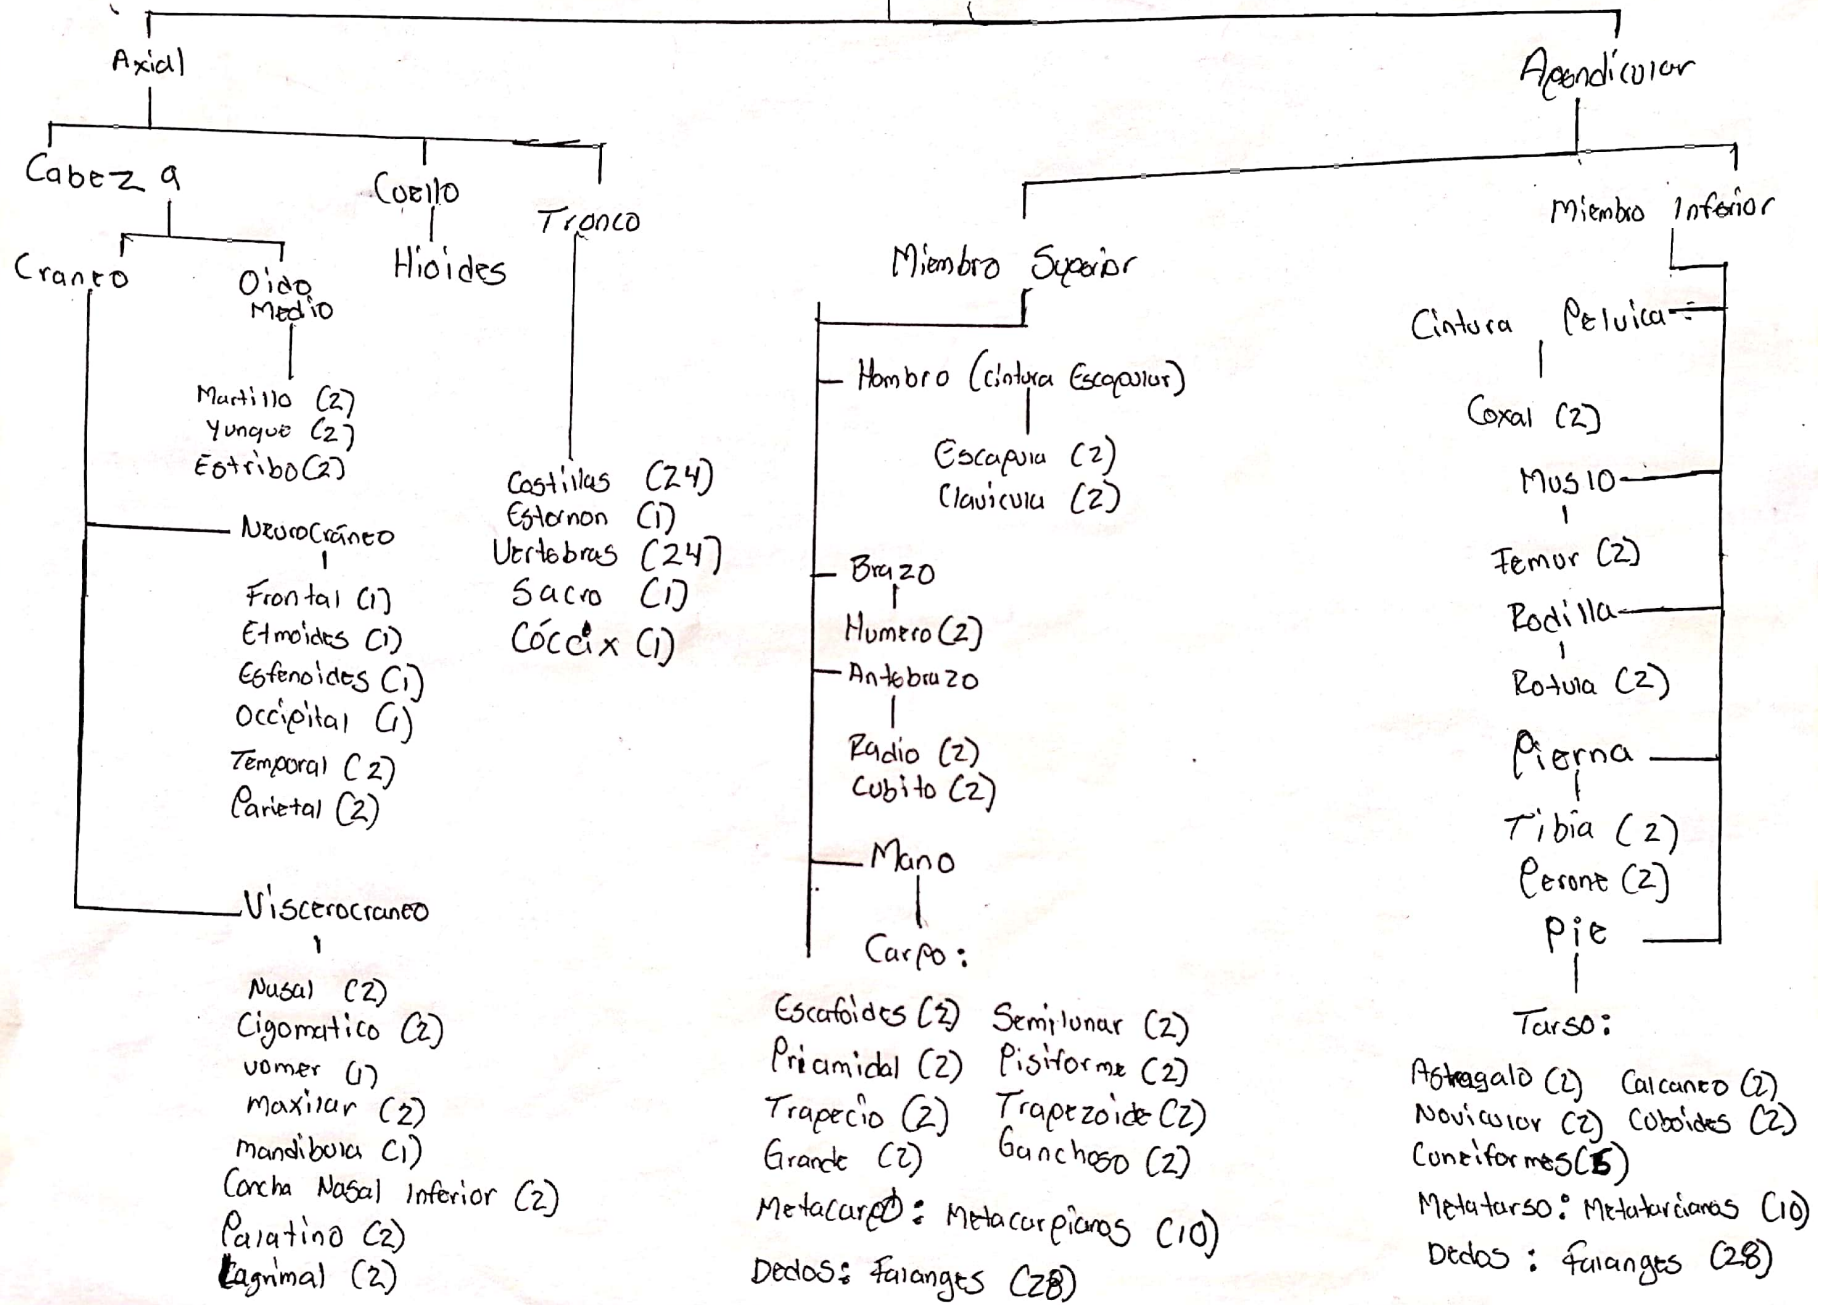 Axial
Apendicular
Cabeza
Cuello
Tronco
Miembro Superior
Miembro Inferior
Craneo
Oido
Medio
Hioides
Martillo (2)
Yunque (2)
Estribo (2)
Neurocráneo
Frontal (1)
Etmoides (1)
Esfenoides (1)
Occipital (1)
Temporal (2)
Parietal (2)
Viscerocraneo
Nasal (2)
Cigomatico (2)
vomer (1)
maxilar (2)
mandibula (1)
Concha Nasal Inferior (2)
Palatino (2)
Lagrimal (2)
Costillas (24)
Esternon (1)
Vertebras (24)
Sacro (1)
Cóccix (1)
Hombro (cintura Escapular)
Escapula (2)
Clavicula (2)
Brazo
Humero (2)
Antebrazo
Radio (2)
Cubito (2)
Mano
Carpo:
Escafoides (2) Semilunar (2)
Priamidal (2) Pisiforme (2)
Trapecio (2) Trapezoide (2)
Grande (2) Ganchoso (2)
Metacarpo: Metacarpianos (10)
Dedos: Falanges (28)
Cintura Pelvica
Coxal (2)
Muslo
Femur (2)
Rodilla
Rotula (2)
Pierna
Tibia (2)
Perone (2)
Pie
Tarso:
Astragalo (2) Calcaneo (2)
Navicular (2) Cuboides (2)
Cuneiformes
Metatarso: Metatarcianos (10)
Dedos: Falanges (28)